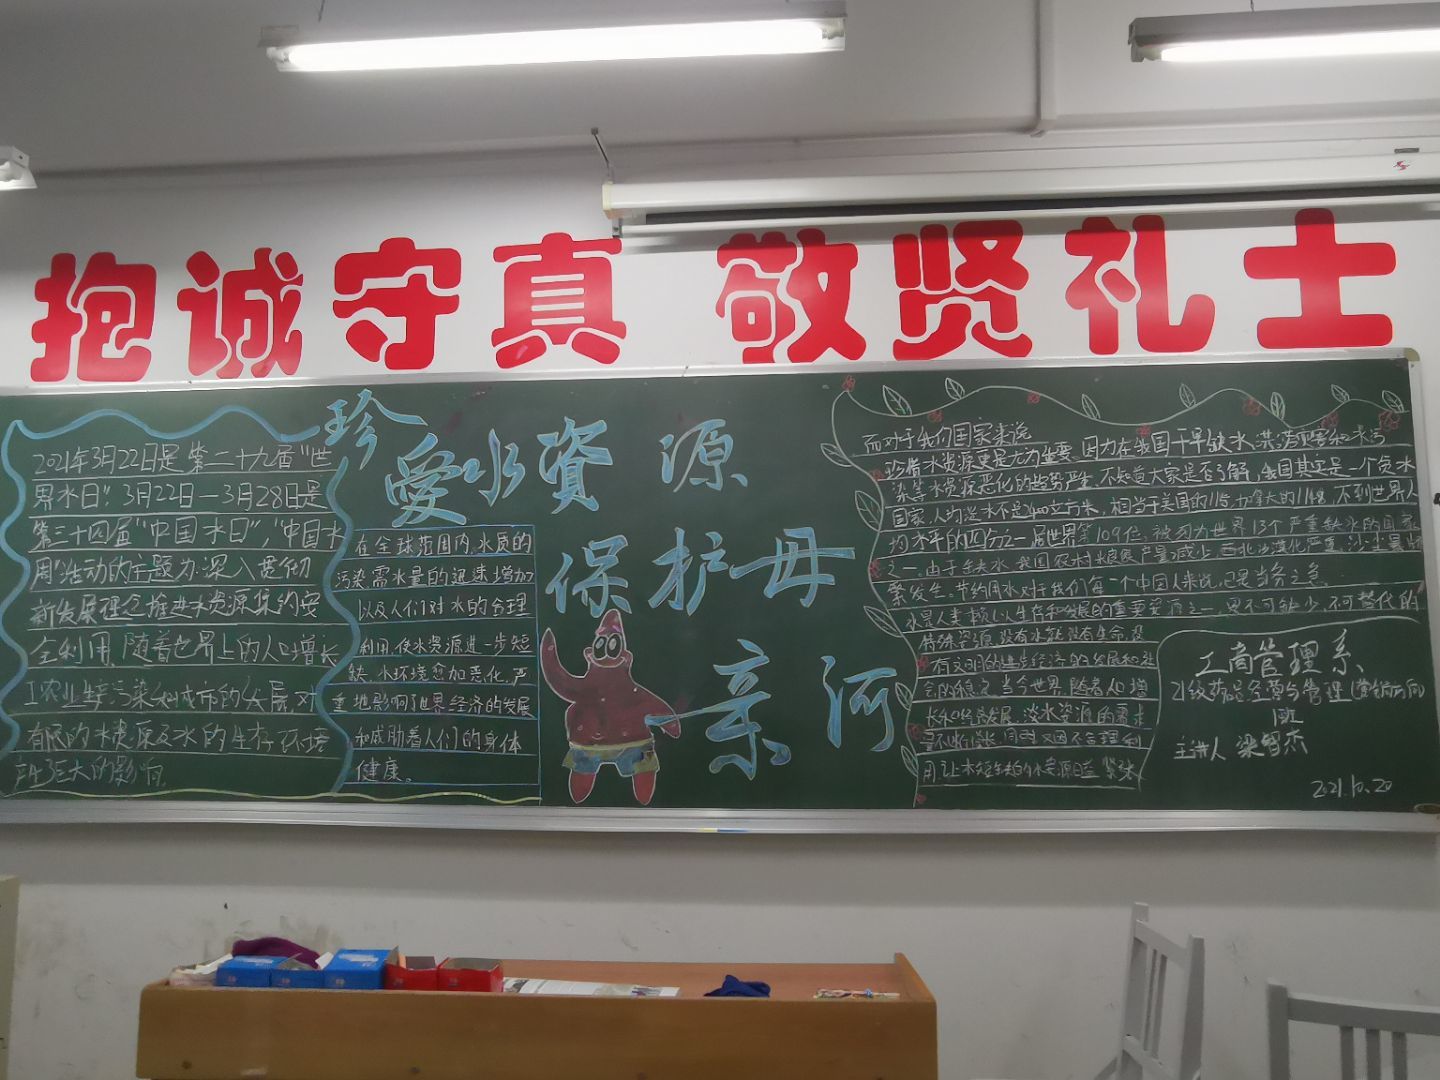 抱诚守真 敬贤礼士
珍爱水資源
保护母亲河
2021年3月22日是第二十九届"世
界水日".3月22日—3月28日是
第三十四届"中国水日","中国水
周"活动的主题为:深入贯彻
新发展理念,推进水资源集约安
全利用,随着世界上的人口增长
工农业生产污染和城市的发展,对
有限的水资源及水的生存环境
产生巨大的影响.
在全球范围内,水质的
污染,需水量的迅速增加
以及人们对水的合理
利用,使水资源进一步短
缺,水环境愈加恶化,严
重地影响了世界经济的发展
和威胁着人们的身体
健康。
而对于我们国家来说
珍惜水资源更是尤为重要,因为在我国干旱缺水,洪涝
染等水资源恶化的趋势严重,不知道大家是否了解,我国其实是一个贫水
国家,人均淡水不足2400立方米,相当于美国的1/5,加拿大的1/48,不到世界人
均水平的四分之一,居世界第109位,被列为世界13个严重缺水的国家
之一.由于缺水,我国农村水粮食产量减少,西北沙漠化严重,沙尘暴频
繁发生.节约用水对于我们每一个中国人来说,已是当务之急
水是人类赖以生存和发展的重要资源之一,更不可缺少,不可替代的
特殊资源,没有水就没有生命,没
有文明的进步,经济的发展和社
会的稳定.当今世界,随着人口增
长和经济发展,淡水资源的需求
量不断增长,同时又因不合理利
用,让本短缺的水资源日益紧张
工商管理系
21级药品经营与管理(营销方向)
1班
主讲人 梁
2021.10.20